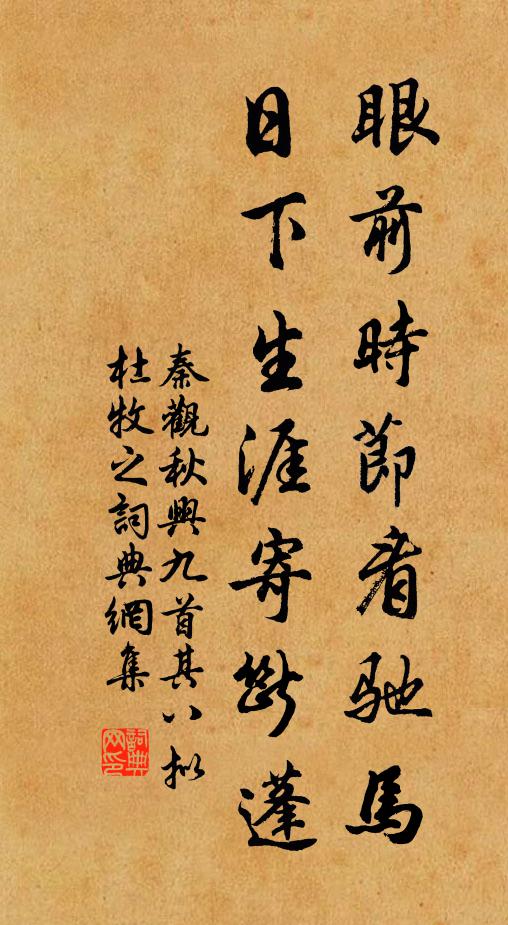 眼前時節看馳馬
日下生涯寄斷蓬
秦觀秋興九首其八拟
杜牧之詞典網集
詞典网印